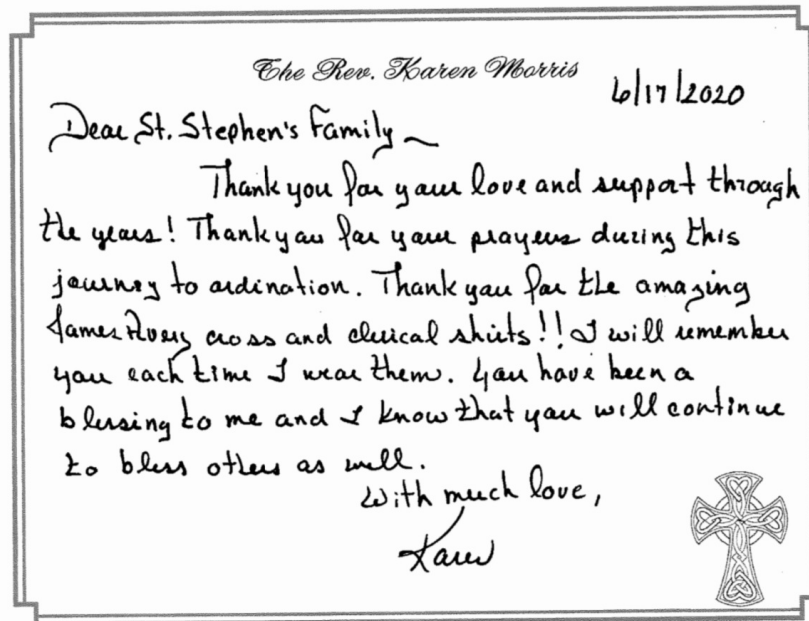 The Rev. Karen Morris
6/17/2020
Dear St. Stephen's Family ~
Thank you for your love and support through
the years! Thank you for your prayers during this
journey to ordination. Thank you for the amazing
James Avery cross and clerical shirts!! I will remember
you each time I wear them. You have been a
blessing to me and I know that you will continue
to bless others as well.
With much love,
Karen